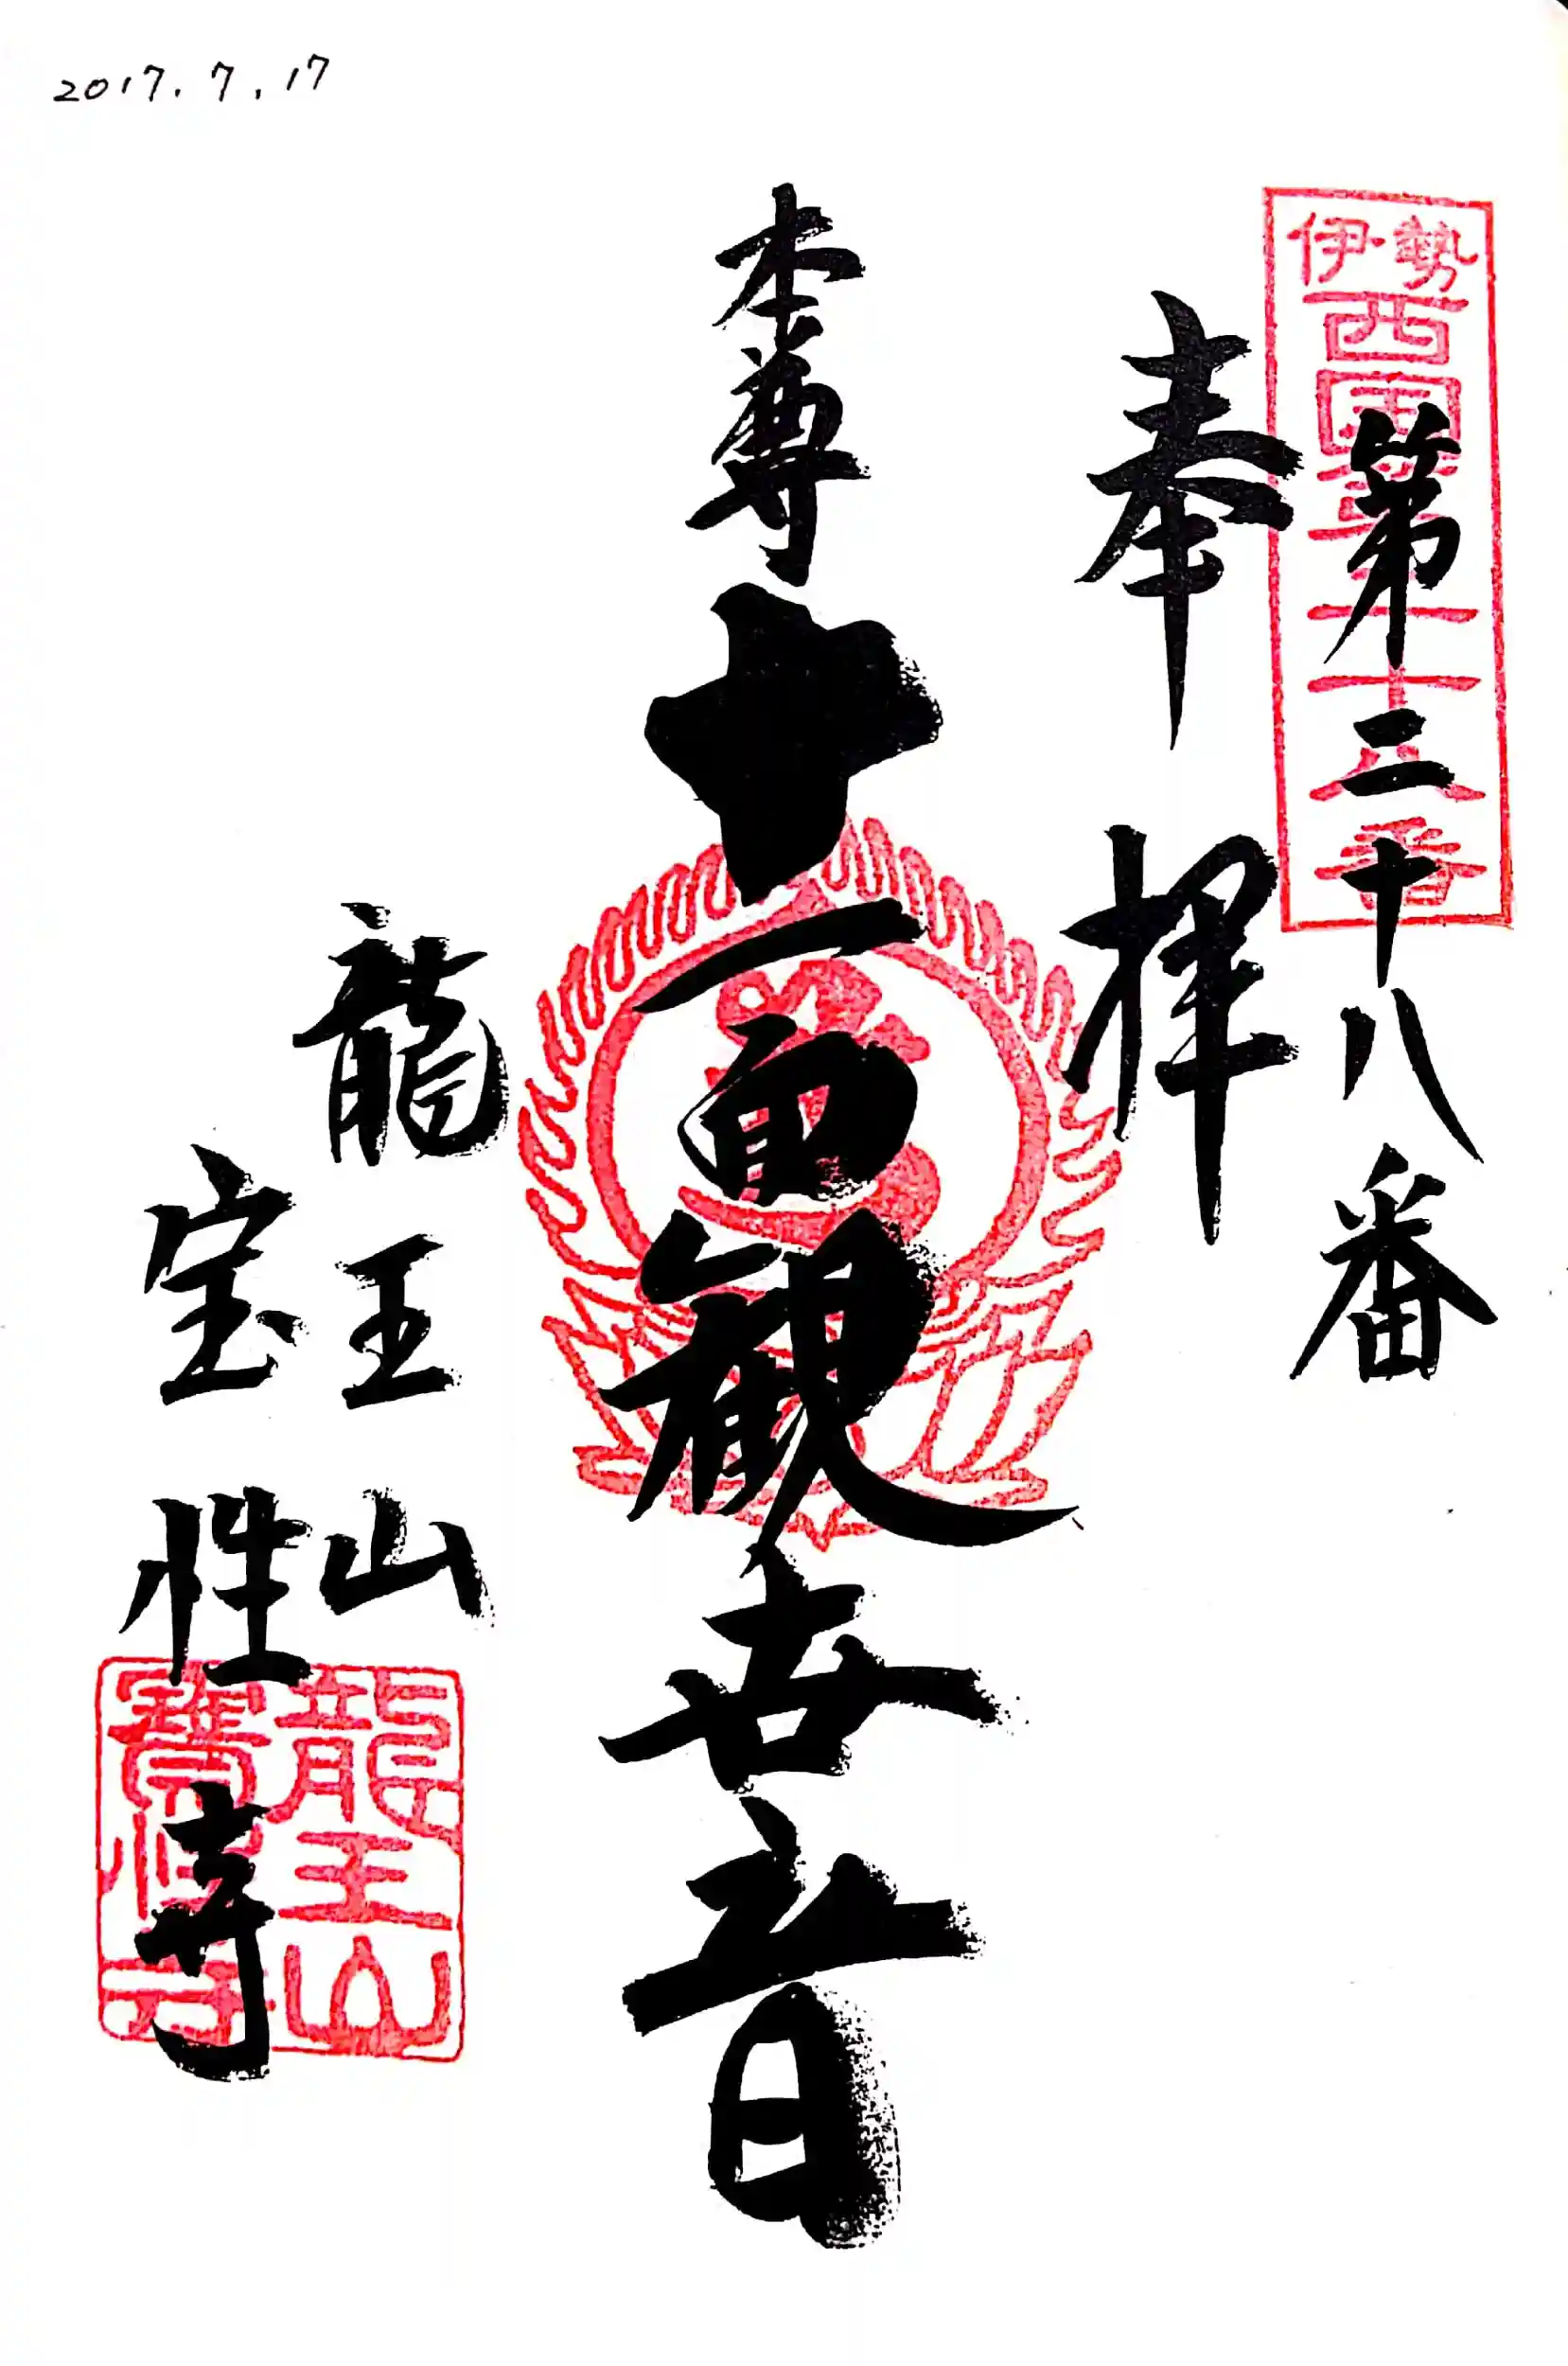 2017.7.17
伊勢西國第二十八番
第二十八番
奉拝
本尊十一面観世音
龍王山
宝性寺
龍王山
寳性寺